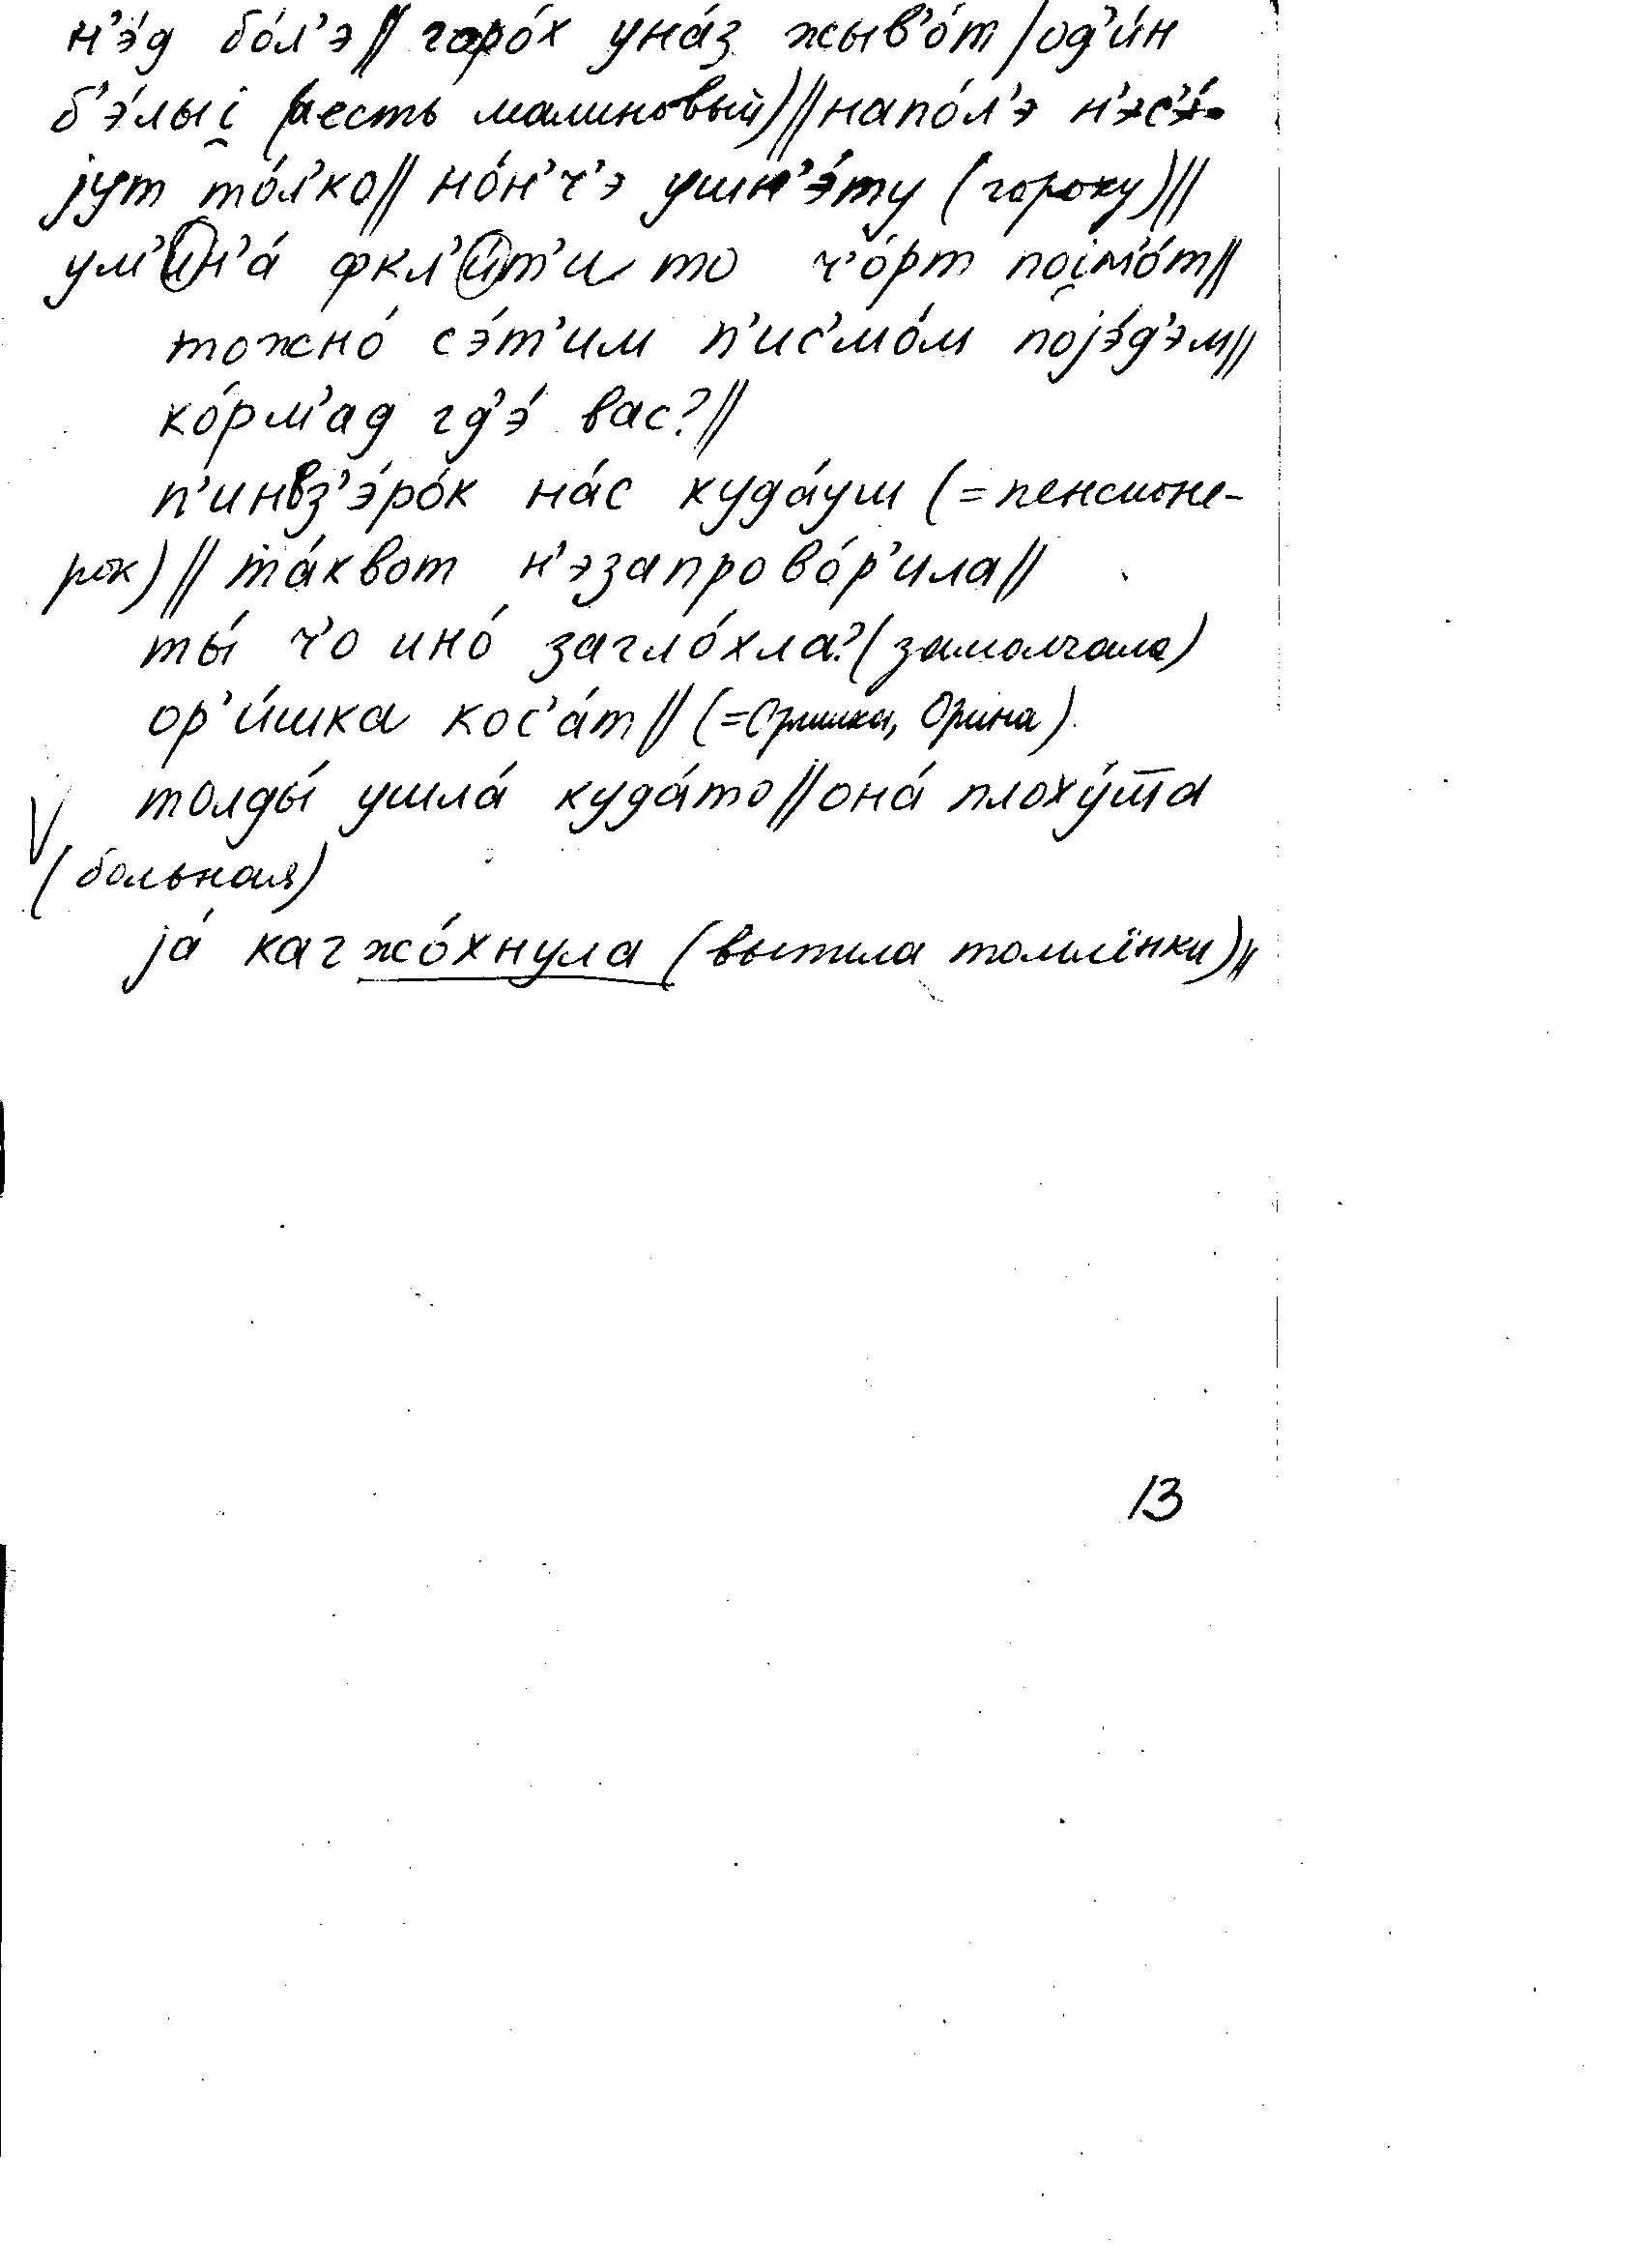 н’э́д бо́л’э // горо́х уна́з жыв’о́т / од’и́н
б’э́лыi̯ (а есть малиновый) // напо́л’э н’эс’э́-
jут то́л’ко // но́н’ч’э ушн’э́ту (гороху) //
ум’ин’а́ фкл’и́т’и то ч’о́рт поi̯м’о́т //
тожно́ сэ́т’им п’ис’мо́м поjэ́д’эм //
ко́рм’ад гд’э́ вас? //
п’инвз’э́ро́к на́с куда́уш (= пенсионе-
рок) // та́квот н’эзапрово́р’ила //
ты́ ч’о ино́ загло́хла? (замолчала)
ор’и́шка кос’а́т // (= Оришка, Орина)
толды́ ушла́ куда́то // она́ плоху́шша
(больная)
jа́ каг жо́хнула (выпила томлёнки) //
13